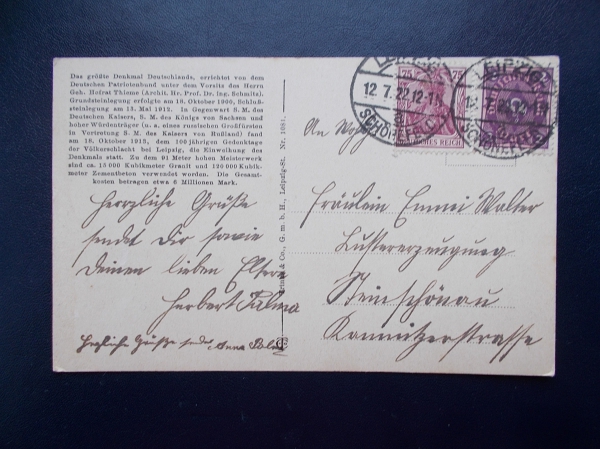 Das größte Denkmal Deutschlands, errichtet von dem
Deutschen Patriotenbund unter dem Vorsitz des Herrn
Geh. Hofrat Thieme (Archit. Hr. Prof. Dr. Ing. Schmitz).
Grundsteinlegung erfolgte am 18. Oktober 1900, Schluß-
steinlegung am 13. Mai 1912. In Gegenwart S. M. des
Deutschen Kaisers, S. M. des Königs von Sachsen und
hoher Würdenträger (u. a. eines russischen Großfürsten
in Vertretung S. M. des Kaisers von Rußland) fand
am 18. Oktober 1913, dem 100jährigen Gedenktage
der Völkerschlacht bei Leipzig, die Einweihung des
Denkmals statt. Zu dem 91 Meter hohen Meisterwerk
sind ca. 15 000 Kubikmeter Granit und 120 000 Kubik-
meter Zementbeton verwendet worden. Die Gesamt-
kosten betragen etwa 6 Millionen Mark.
Herzliche Grüße
sendet Dir sowie
Deinen lieben Eltern
Herbert Palma
Herzliche Grüße Anna
& Co., G. m. b. H., Leipzig-St. Nr. 1081.
LEIPZIG
12 7. 22. 12-1
a
SCHÖNEFELD
75 75
DEUTSCHES REICH
LEIPZIG
SCHÖNEFELD
An
Fräulein Emmi Walter
Lustererzeugung
Steinschönau
Kamnitzerstrasse